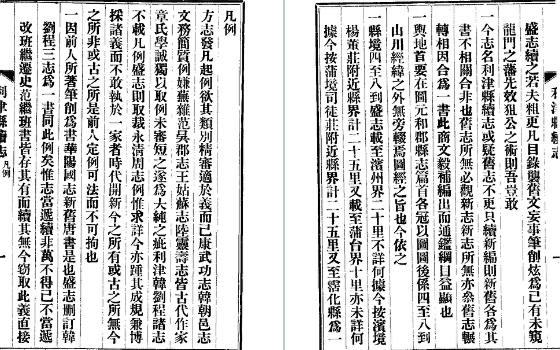 凡例
方志發凡起例欲其類別精審適於義而已康武功志韓朝邑志
文務簡質例嫌蕪雜范吳郡志王姑蘇志陸靈壽志皆古代作家
章氏學誠獨以取例未審短之遂為大純之疵利津韓劉程諸志
不載凡例盛志則取裁永清周志例惟求詳今亦踵其成規兼博
採諸義而不敢執於一家者時代開新今之所有或古之所無今
之所非或古之所是前人定例可法而不可拘也
一因前人所著筆創為書華陽國志新舊唐書是也盛志刪訂韓
劉程三志為一書同此例矣惟志當遞續非萬不得已不當遞
改班繼遷史范繼班書皆存其有而續其無今竊取此義直接
利津縣續志 凡例 一
盛志續之若夫粗更凡目錄襲舊文妄事筆創炫為己有未窺
龍門之藩先效狙公之術則吾豈敢
一今志名利津縣續志或疑舊志不更只續新編則新舊各為其
書不相關合非也舊志所無必觀新志新志所無亦參舊志輾
轉相因合為一書此商文毅補編出而通鑑綱目益顯也
一輿地首要在圖元和郡縣志篇首各冠以圖圖後係四至八到
山川經緯之外無旁綴焉圖經之旨也今依之
一縣境四至八到盛志載至濱州界二十里不詳何據今按濱境
楊董莊附近縣界計二十五里又載至蒲台界十里亦未詳何
據今按蒲境司徒莊附近縣界計二十五里又至霑化縣為一